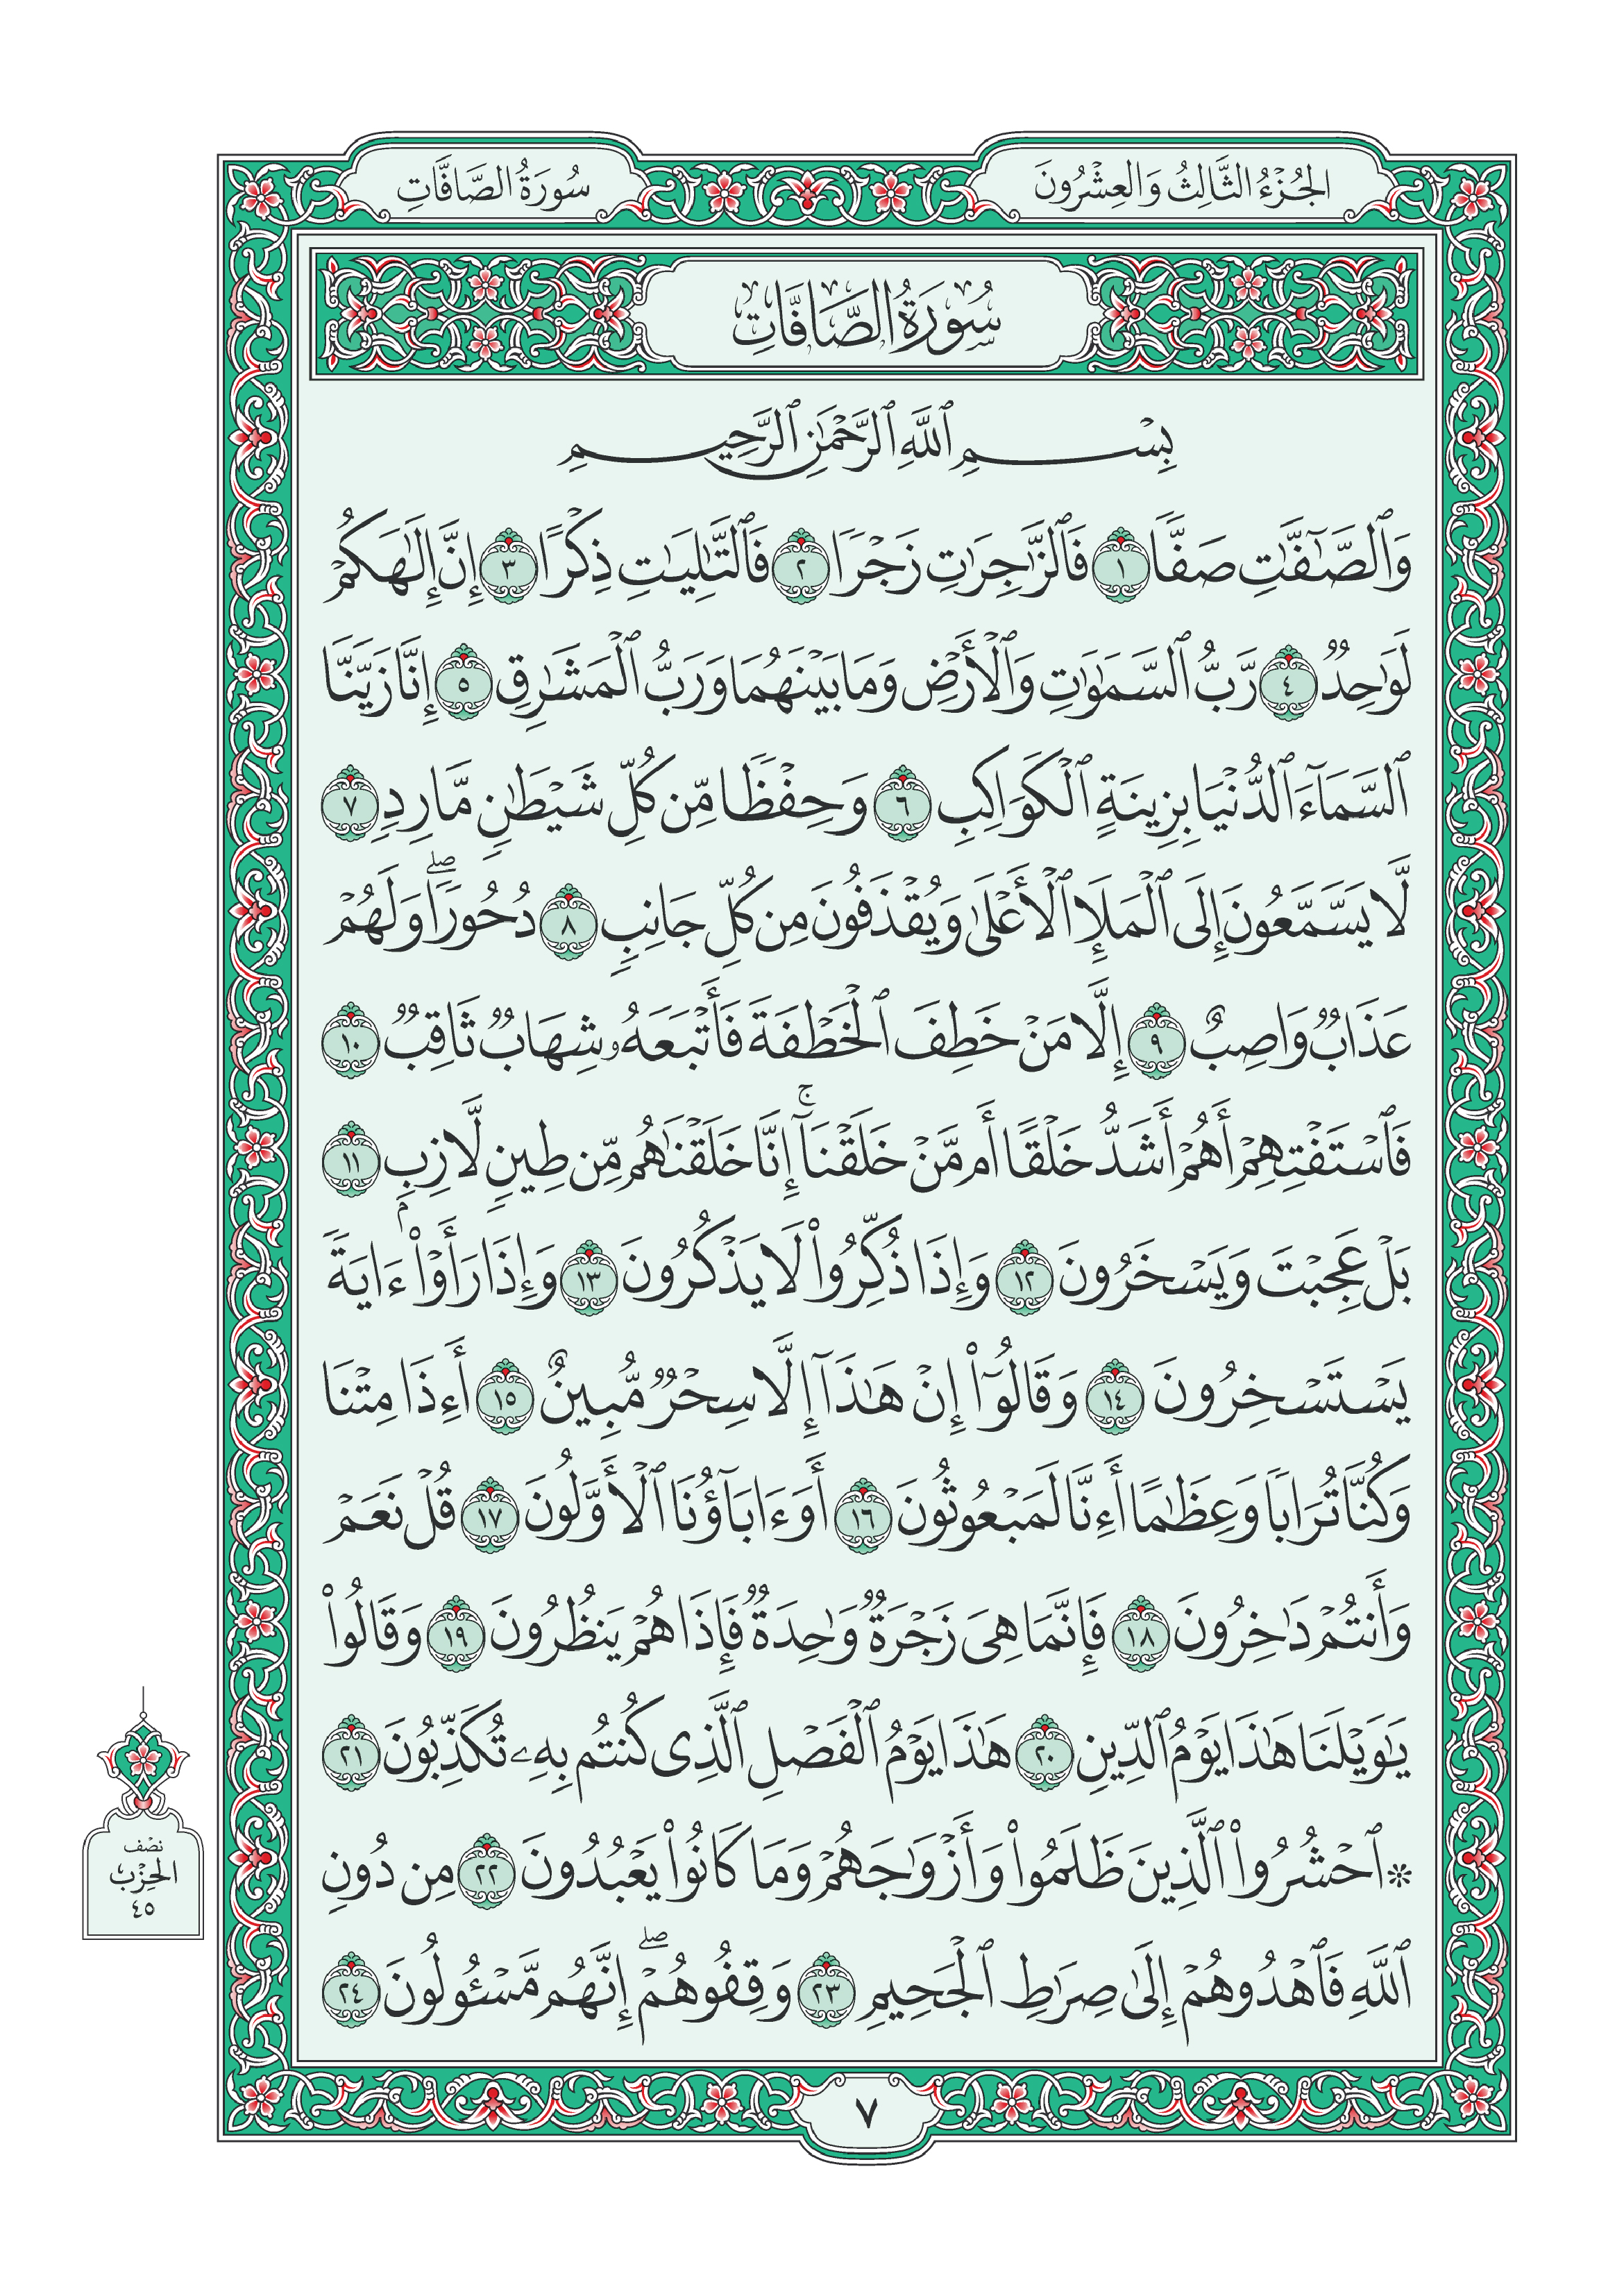 الجُزْءُ الثَّالِثُ وَالعِشْرُونَ
سُورَةُ الصَّافَّاتِ
سُورَةُ الصَّافَّاتِ
بِسْمِ ٱللَّهِ ٱلرَّحْمَٰنِ ٱلرَّحِيمِ
وَٱلصَّٰٓفَّٰتِ صَفّٗا ١ فَٱلزَّٰجِرَٰتِ زَجۡرٗا ٢ فَٱلتَّٰلِيَٰتِ ذِكۡرًا ٣ إِنَّ إِلَٰهَكُمۡ
لَوَٰحِدٞ ٤ رَّبُّ ٱلسَّمَٰوَٰتِ وَٱلۡأَرۡضِ وَمَا بَيۡنَهُمَا وَرَبُّ ٱلۡمَشَٰرِقِ ٥ إِنَّا زَيَّنَّا
ٱلسَّمَآءَ ٱلدُّنۡيَا بِزِينَةٍ ٱلۡكَوَاكِبِ ٦ وَحِفۡظٗا مِّن كُلِّ شَيۡطَٰنٖ مَّارِدٖ ٧
لَّا يَسَّمَّعُونَ إِلَى ٱلۡمَلَإِ ٱلۡأَعۡلَىٰ وَيُقۡذَفُونَ مِن كُلِّ جَانِبٖ ٨ دُحُورٗاۖ وَلَهُمۡ
عَذَابٞ وَاصِبٌ ٩ إِلَّا مَنۡ خَطِفَ ٱلۡخَطۡفَةَ فَأَتۡبَعَهُۥ شِهَابٞ ثَاقِبٞ ١٠
فَٱسۡتَفۡتِهِمۡ أَهُمۡ أَشَدُّ خَلۡقًا أَم مَّنۡ خَلَقۡنَآۚ إِنَّا خَلَقۡنَٰهُم مِّن طِينٖ لَّازِبِۭ ١١
بَلۡ عَجِبۡتَ وَيَسۡخَرُونَ ١٢ وَإِذَا ذُكِّرُواْ لَا يَذۡكُرُونَ ١٣ وَإِذَا رَأَوۡاْ ءَايَةٗ
يَسۡتَسۡخِرُونَ ١٤ وَقَالُوٓاْ إِنۡ هَٰذَآ إِلَّا سِحۡرٞ مُّبِينٌ ١٥ أَءِذَا مِتۡنَا
وَكُنَّا تُرَابٗا وَعِظَٰمًا أَءِنَّا لَمَبۡعُوثُونَ ١٦ أَوَءَابَآؤُنَا ٱلۡأَوَّلُونَ ١٧ قُلۡ نَعَمۡ
وَأَنتُمۡ دَٰخِرُونَ ١٨ فَإِنَّمَا هِيَ زَجۡرَةٞ وَٰحِدَةٞ فَإِذَا هُمۡ يَنظُرُونَ ١٩ وَقَالُواْ
يَٰوَيۡلَنَا هَٰذَا يَوۡمُ ٱلدِّينِ ٢٠ هَٰذَا يَوۡمُ ٱلۡفَصۡلِ ٱلَّذِي كُنتُم بِهِۦ تُكَذِّبُونَ ٢١
۞ ٱحۡشُرُواْ ٱلَّذِينَ ظَلَمُواْ وَأَزۡوَٰجَهُمۡ وَمَا كَانُواْ يَعۡبُدُونَ ٢٢ مِن دُونِ
ٱللَّهِ فَٱهۡدُوهُمۡ إِلَىٰ صِرَٰطِ ٱلۡجَحِيمِ ٢٣ وَقِفُوهُمۡۖ إِنَّهُم مَّسۡـُٔولُونَ ٢٤
نصۡف
الحِزۡب
٤٥
٧